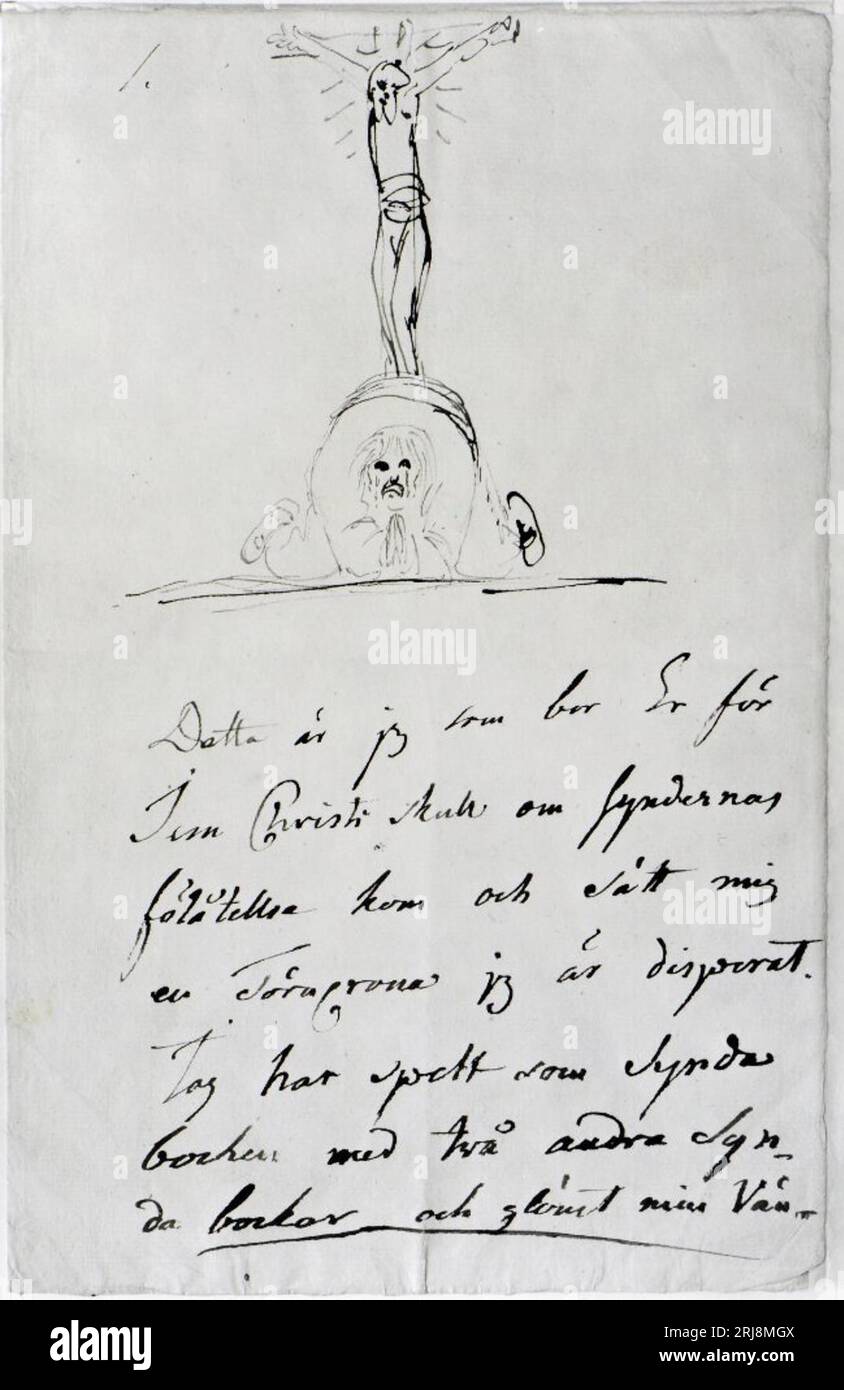 1.
Detta är jg som ber Er för
Jesu Christi skull om syndernas
förlåtellse kom och sätt mig
en Törnçrona jg är disperat.
Jag har spelt som Synda
bocken med två andra Syn-
da bockar och glömt min Vän-
alamy
alamy
Image ID: 2RJ8MGX
www.alamy.com